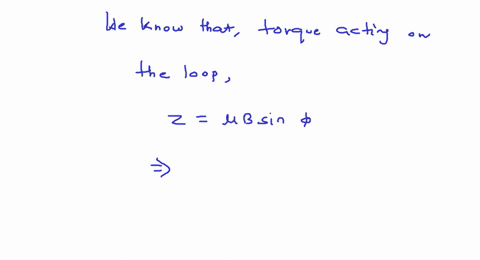 We know that, torque acting on
the loop,
τ = μB sin φ
⇒